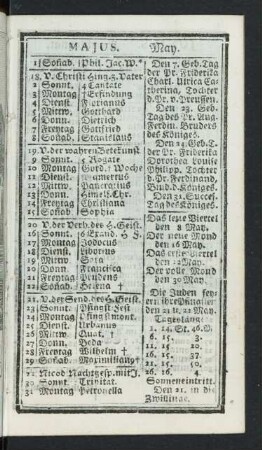 MAJUS.
May.
1 Soñab. Phil. Jac. W.*
18. V. Christi Hing. z. Vater
2 Sonnt. 4 Cantate
3 Montag Erfindung
4 Dienst. Florianus
5 Mittw. Gotthard
6 Donn. Dietrich
7 Freytag Gottfried
8 Soñab. Stanislaus
19. V. der wahren Betekunst
9 Sonnt. 5 Rogate
10 Montag Gord.
11 Dienst. Mamertus
12 Mittw Pancratius
13 Donn. Himelf. Chr.
14 Freytag Christiana
15 Soñab. Sophia
20 V. der Verh. des H. Geist.
16 Sonnt. 6 Exaud
17 Montag Jodocus
18 Dienst. Liborius
19 Mittw Sara
20 Donn. Francisca
21 Freytag Prudens
22 Soñab. Helena †
21. V. der Send. des H. Geist.
23 Sonnt. Pfingst Fest
24 Montag Pfingstmont.
25 Dienst. Urbanus
26 Mittw. Quat. †
27 Donn. Beda
28 Freytag Wilhelm †
29 Soñab. Maximilian †
22. Nicod Nachtgesp. mit J.
30 Sonnt. Trinitat.
31 Montag Petronella
Den 7. Geb. Tag
der Pr. Friderika
Charl. Ulrica Ca-
therina, Tochter
d. Pr. v. Preussen.
Den 23. Geb.
Tag des Pr. Aug.
Ferdin. Bruders
des Königes.
Den 24. Geb. T.
der Pr. Friderika
Dorothea Louise
Philipp. Tochter
d. Pr. Ferdinand,
Brud. d. Königes.
Den 31. Succes.
Tag des Königes.
Das lezte Viertel
den 8 May.
Der neue Mond
den 16 May.
Das erste Viertel
den 22 May.
Der volle Mond
den 30 May.
Die Juden fey-
ern ihre Pfingsten
den 21 u. 22 May.
Tageslänge:
1. 14. St. 46. M.
6. 15. 3.
11. 15. 20.
16. 15. 37.
21. 15. 50.
26. 16. 4.
Sonneneintritt.
Den 21. in die
Zwillinge.